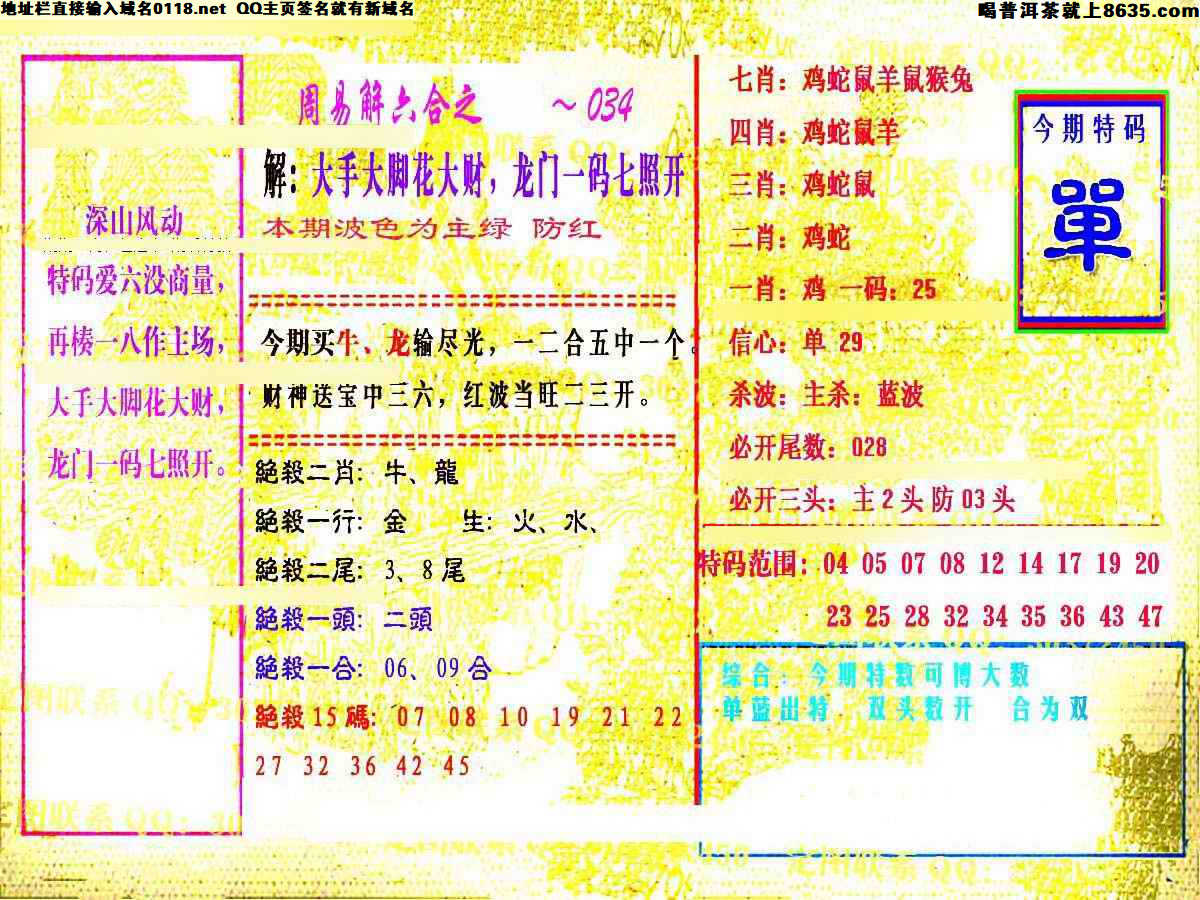 地址栏直接输入域名0118.net QQ主页签名就有新域名
喝普洱茶就上8635.com
周易解六合之 ～034
解：大手大脚花大财，龙门一码七照开
本期波色为主绿 防红
深山风动
特码爱六没商量，
再楱一八作主场，
大手大脚花大财，
龙门一码七照开。
今期买牛、龙输尽光，一二合五中一个。
财神送宝中三六，红波当旺二三开。
絕殺二肖：牛、龍
絕殺一行：金 生：火、水、
絕殺二尾：3、8尾
絕殺一頭：二頭
絕殺一合：06、09合
絕殺15碼：07 08 10 19 21 22
27 32 36 42 45
七肖：鸡蛇鼠羊鼠猴兔
四肖：鸡蛇鼠羊
三肖：鸡蛇鼠
二肖：鸡蛇
一肖：鸡 一码：25
信心：单 29
杀波：主杀：蓝波
必开尾数：028
必开三头：主2头防03头
今期特码
單
特码范围：04 05 07 08 12 14 17 19 20
23 25 28 32 34 35 36 43 47
综合：今期特数可博大数
单蓝出特 双头数开 合为双